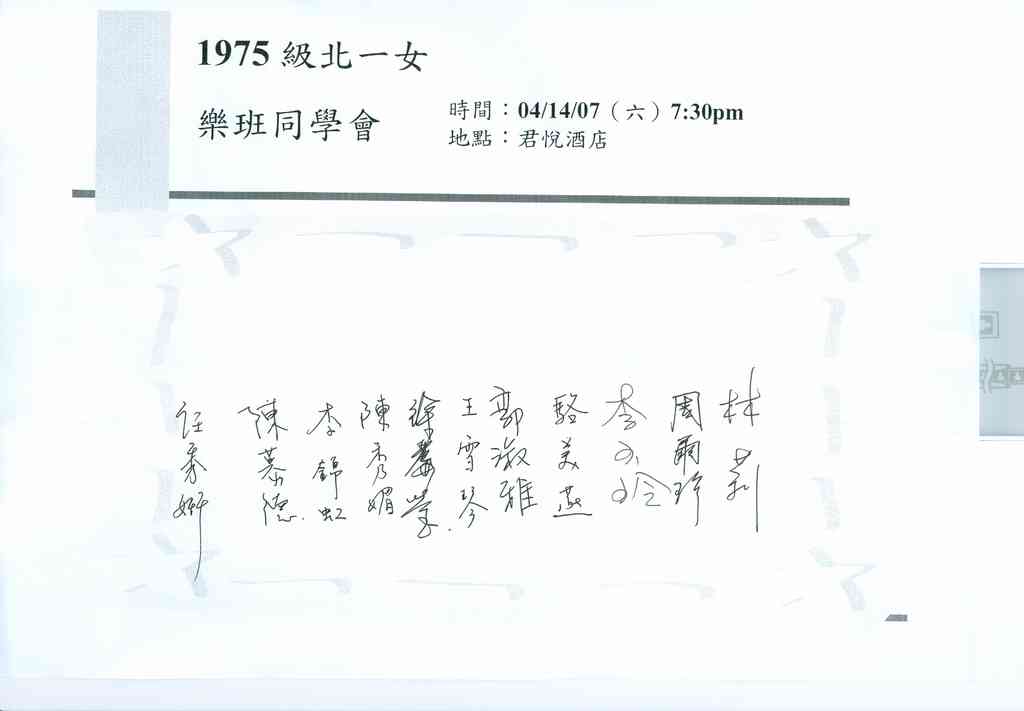 1975 級北一女
樂班同學會
時間：04/14/07（六）7:30pm
地點：君悅酒店
林莉
周爾珍
李小玲
駱美燕
郭淑雅
王雪琴
徐鶯
陳秀媚
李錦虹
陳慕德.
任秀妍